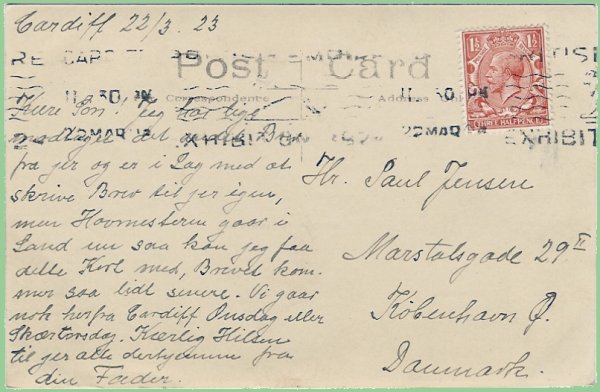 Cardiff 22/3. 23
Post Card
Correspondence
Address
1½ 1½
THREE HALFPENCE
11 30 PM
22 MAR
EXHIBITION
11 30 PM
22 MAR
EXHIBIT
Kære Søn! Jeg har lige
modtaget det andet Brev
fra jer og er i Lag med at
skrive Brev til jer igen,
men Hovmesteren gaar i
Land nu saa kan jeg faa
dette Kort med, Brevet kom-
mer saa lidt senere. Vi gaar
nok herfra Cardiff Onsdag eller
Skærtorsdag. Kærlig Hilsen
til jer alle derhjemme fra
din Fader.
Hr. Paul Jensen
Marstalsgade 29 II
København Ø.
Danmark.